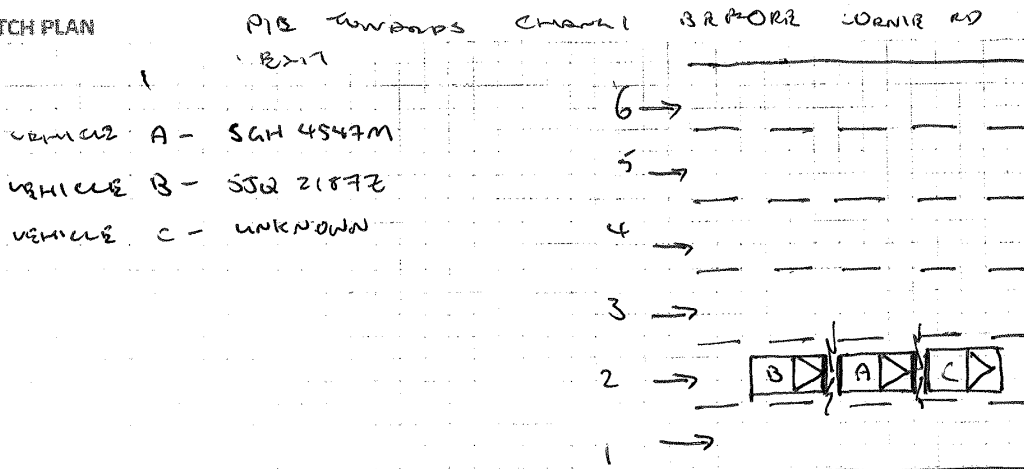 TCH PLAN
PIE TOWARDS CHANGI BEFORE LORNIE RD
EXIT
VEHICLE A - SGH 4547M
VEHICLE B - SJQ 2187Z
VEHICLE C - UNKNOWN
6
5
4
3
2
B A C
1